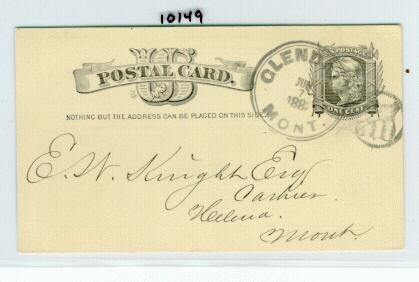 10149
U S
POSTAL CARD.
NOTHING BUT THE ADDRESS CAN BE PLACED ON THIS SIDE.
GLEND
JUN
7
188
MONT.
POSTAGE
ONE CENT
E. W. Knight Esq
Cashier
Helena.
Mont.